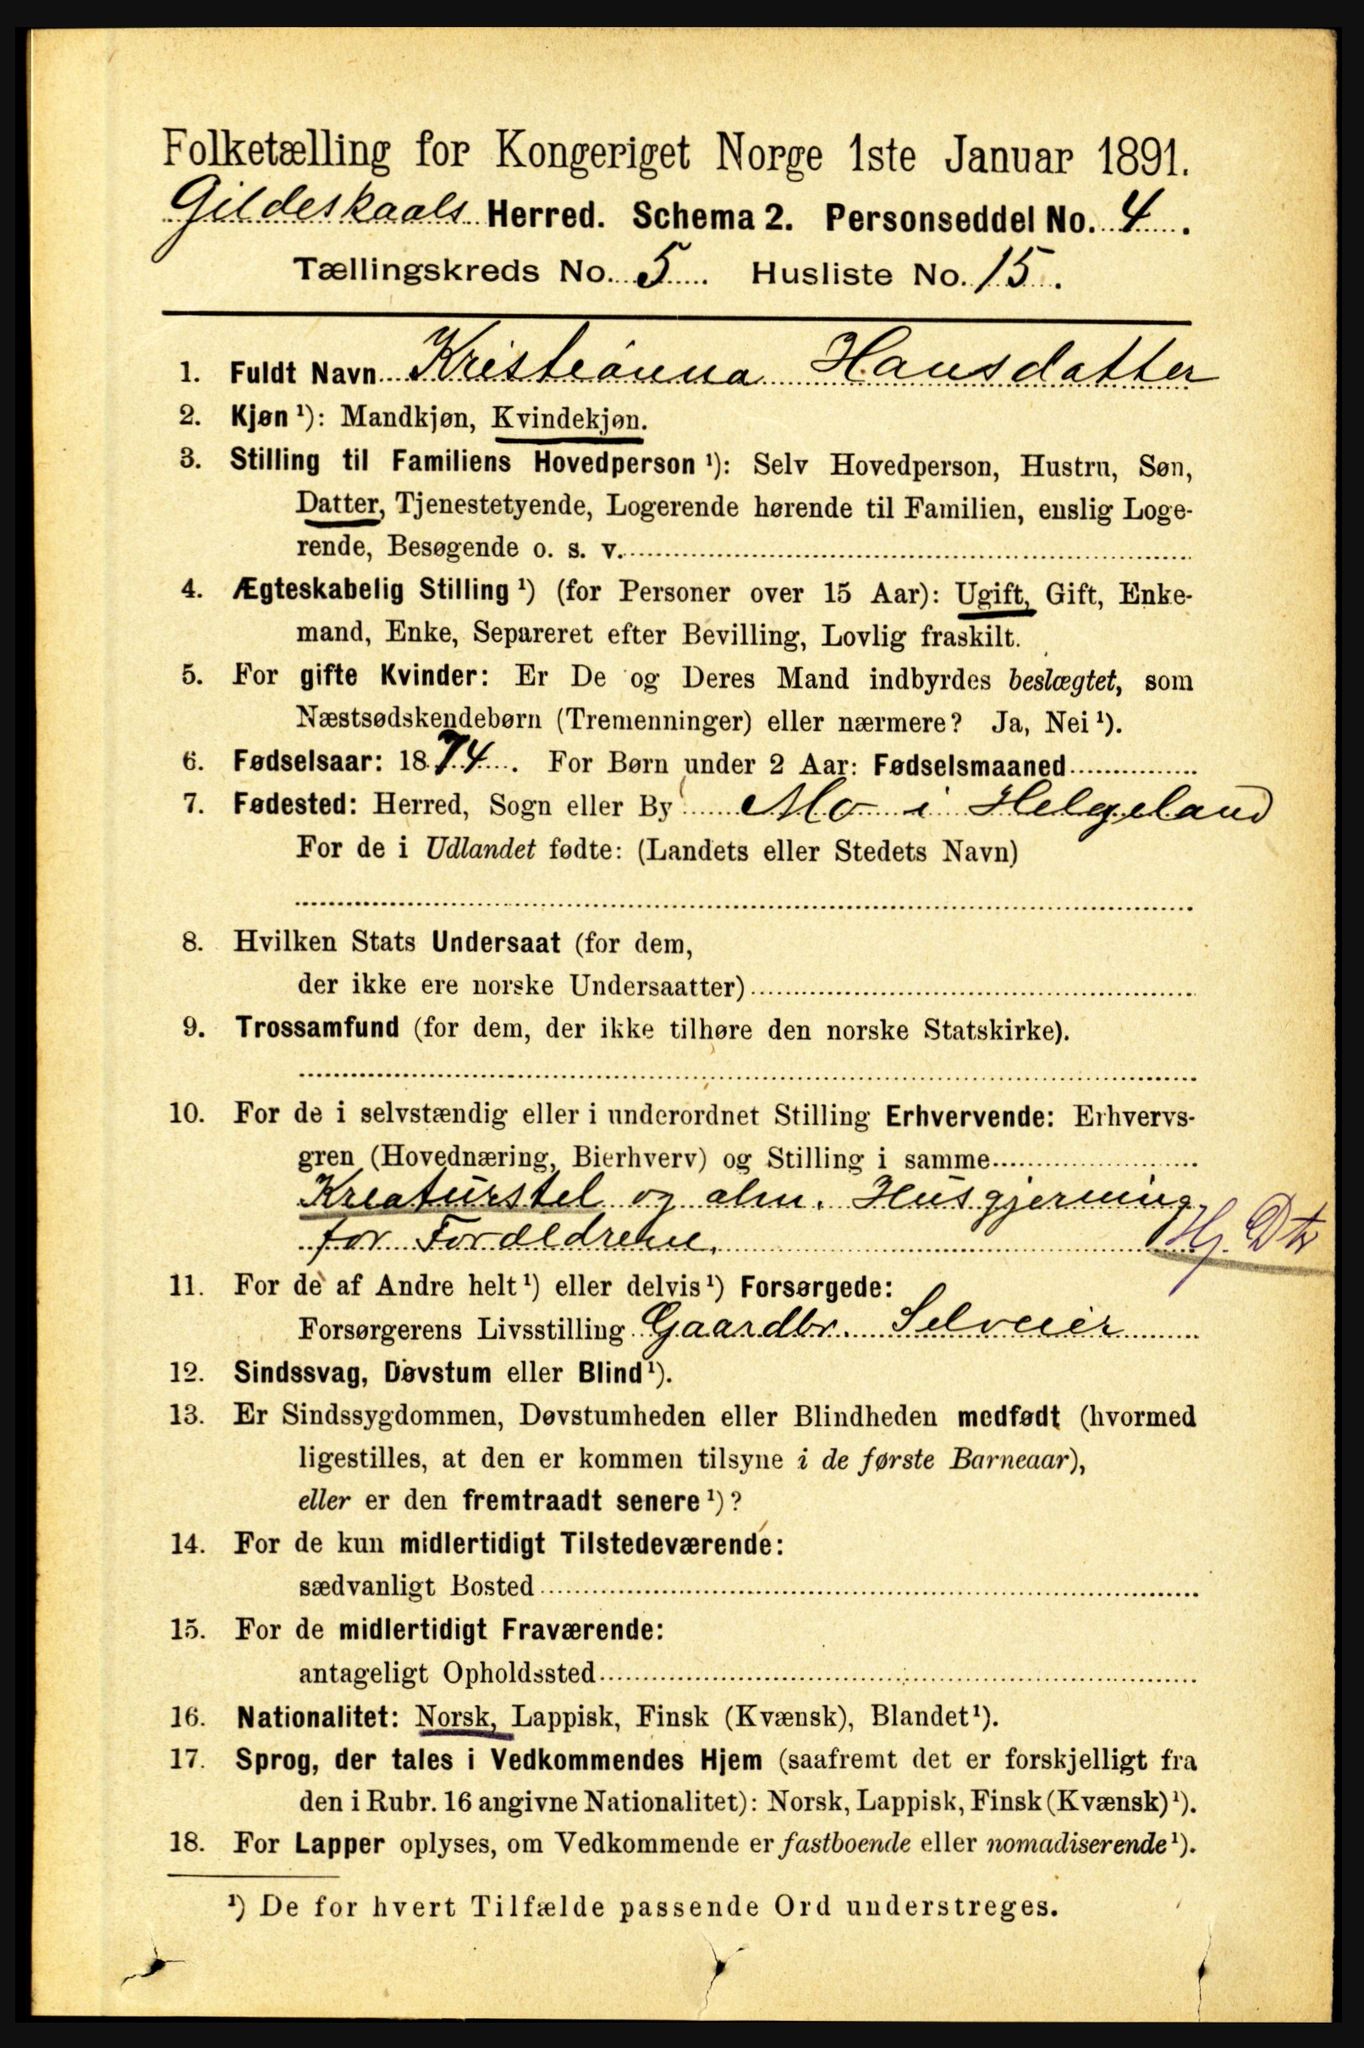 Folketælling for Kongeriget Norge 1ste Januar 1891.
Gildeskaals Herred. Schema 2. Personseddel No. 4.
Tællingskreds No. 5. Husliste No. 15.
1. Fuldt Navn Kristianna Hansdatter
2. Kjøn ¹): Mandkjøn, Kvindekjøn.
3. Stilling til Familiens Hovedperson ¹): Selv Hovedperson, Hustru, Søn,
Datter, Tjenestetyende, Logerende hørende til Familien, enslig Loge-
rende, Besøgende o. s. v.
4. Ægteskabelig Stilling ¹) (for Personer over 15 Aar): Ugift, Gift, Enke-
mand, Enke, Separeret efter Bevilling, Lovlig fraskilt.
5. For gifte Kvinder: Er De og Deres Mand indbyrdes beslægtet, som
Næstsødskendebørn (Tremenninger) eller nærmere? Ja, Nei ¹).
6. Fødselsaar: 1874. For Børn under 2 Aar: Fødselsmaaned
7. Fødested: Herred, Sogn eller By Mo i Helgeland
For de i Udlandet fødte: (Landets eller Stedets Navn)
8. Hvilken Stats Undersaat (for dem,
der ikke ere norske Undersaatter)
9. Trossamfund (for dem, der ikke tilhøre den norske Statskirke).
10. For de i selvstændig eller i underordnet Stilling Erhvervende: Erhvervs-
gren (Hovednæring, Bierhverv) og Stilling i samme
Kreaturstel og alm. Husgjerning
for Forældrene. Hj. Dtr
11. For de af Andre helt ¹) eller delvis ¹) Forsørgede:
Forsørgerens Livsstilling Gaardbr. Selveier
12. Sindssvag, Døvstum eller Blind ¹).
13. Er Sindssygdommen, Døvstumheden eller Blindheden medfødt (hvormed
ligestilles, at den er kommen tilsyne i de første Barneaar),
eller er den fremtraadt senere ¹)?
14. For de kun midlertidigt Tilstedeværende:
sædvanligt Bosted
15. For de midlertidigt Fraværende:
antageligt Opholdssted
16. Nationalitet: Norsk, Lappisk, Finsk (Kvænsk), Blandet ¹).
17. Sprog, der tales i Vedkommendes Hjem (saafremt det er forskjelligt fra
den i Rubr. 16 angivne Nationalitet): Norsk, Lappisk, Finsk (Kvænsk) ¹).
18. For Lapper oplyses, om Vedkommende er fastboende eller nomadiserende ¹).
¹) De for hvert Tilfælde passende Ord understreges.